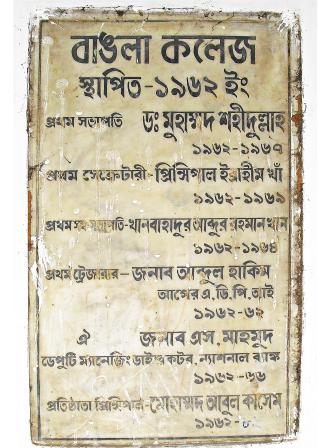 বাঙলা কলেজ
স্থাপিত-১৯৬২ ইং
প্রথম সভাপতি ডঃ মুহাম্মদ শহীদুল্লাহ
১৯৬২-১৯৬৭
প্রথম সেক্রেটারী- প্রিন্সিপাল ইব্রাহীম খাঁ
১৯৬২-১৯৬৯
প্রথম সভাপতি-খানবাহাদুর আব্দুর রহমান খান
১৯৬২-১৯৬৪
প্রথম ট্রেজারার- জনাব আব্দুল হাকিম
আগের এ.ডি.পি.আই
১৯৬২-৬২
ঐ জনাব এস. মাহমুদ
ডেপুটি ম্যানেজিং ডাইরেকটর, ন্যাশনাল ব্যাঙ্ক
১৯৬২-৬৬
প্রতিষ্ঠাতা প্রিন্সিপাল- মোহাম্মদ আবুল কাসেম
১৯৬২-